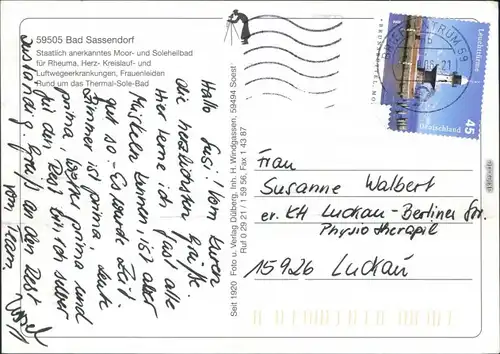 59505 Bad Sassendorf
Staatlich anerkanntes Moor- und Soleheilbad
für Rheuma, Herz- Kreislauf- und
Luftwegeerkrankungen, Frauenleiden
Rund um das Thermal-Sole-Bad
Hallo Susi! Vom Kuren
die herzlichsten Grüße.
Hier lerne ich fast alle
Muskeln kennen ist aber
gut so. Es wurde Zeit.
Zimmer ist prima, Leute
prima, Wetter prima und
für den Rest bin ich selber
zuständig. Gruß an den Rest
vom Team.
Seit 1920 Foto u. Verlag Dülberg, Inh. H. Windgassen, 59494 Soest
Ruf 0 29 21 / 1 59 56, Fax 1 43 87
BRIEFZENTRUM 59
21
Leuchttürme
Deutschland
45
Frau
Susanne Walbert
KH Luckau-Berliner Str.
Physiotherapie
15926 Luckau